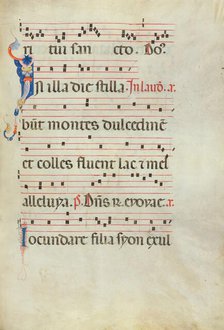 ri tui san cto. Do.
In illa die stilla. In laud. a.
bunt montes dulcedinē
et colles fluent lac 7 mel
alleluya. p. Dñs
Iocundare filia syon exul